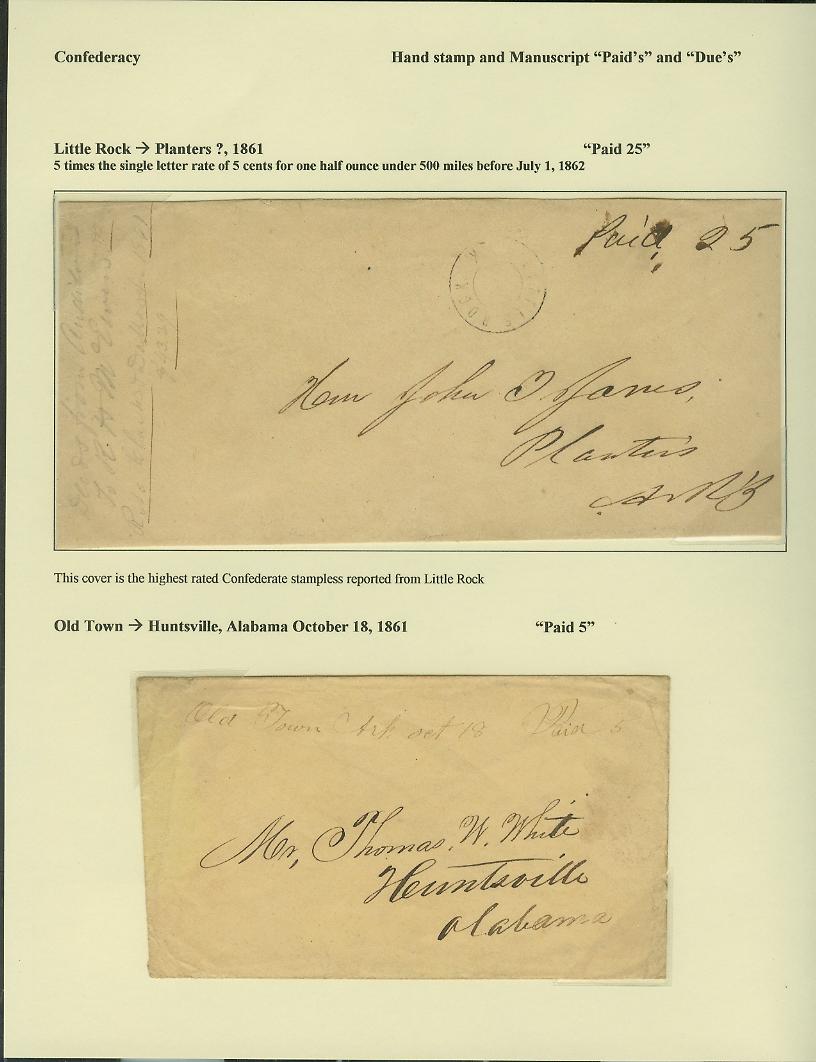 Confederacy
Hand stamp and Manuscript “Paid's” and “Due's”
Little Rock → Planters ?, 1861 “Paid 25”
5 times the single letter rate of 5 cents for one half ounce under 500 miles before July 1, 1862
Paid 25
ROCK
Hon John T Jones,
Planters
Ark
This cover is the highest rated Confederate stampless reported from Little Rock
Old Town → Huntsville, Alabama October 18, 1861 “Paid 5”
Old Town Ark oct 18 Paid 5
Mr, Thomas. W. White
Huntsville
Alabama